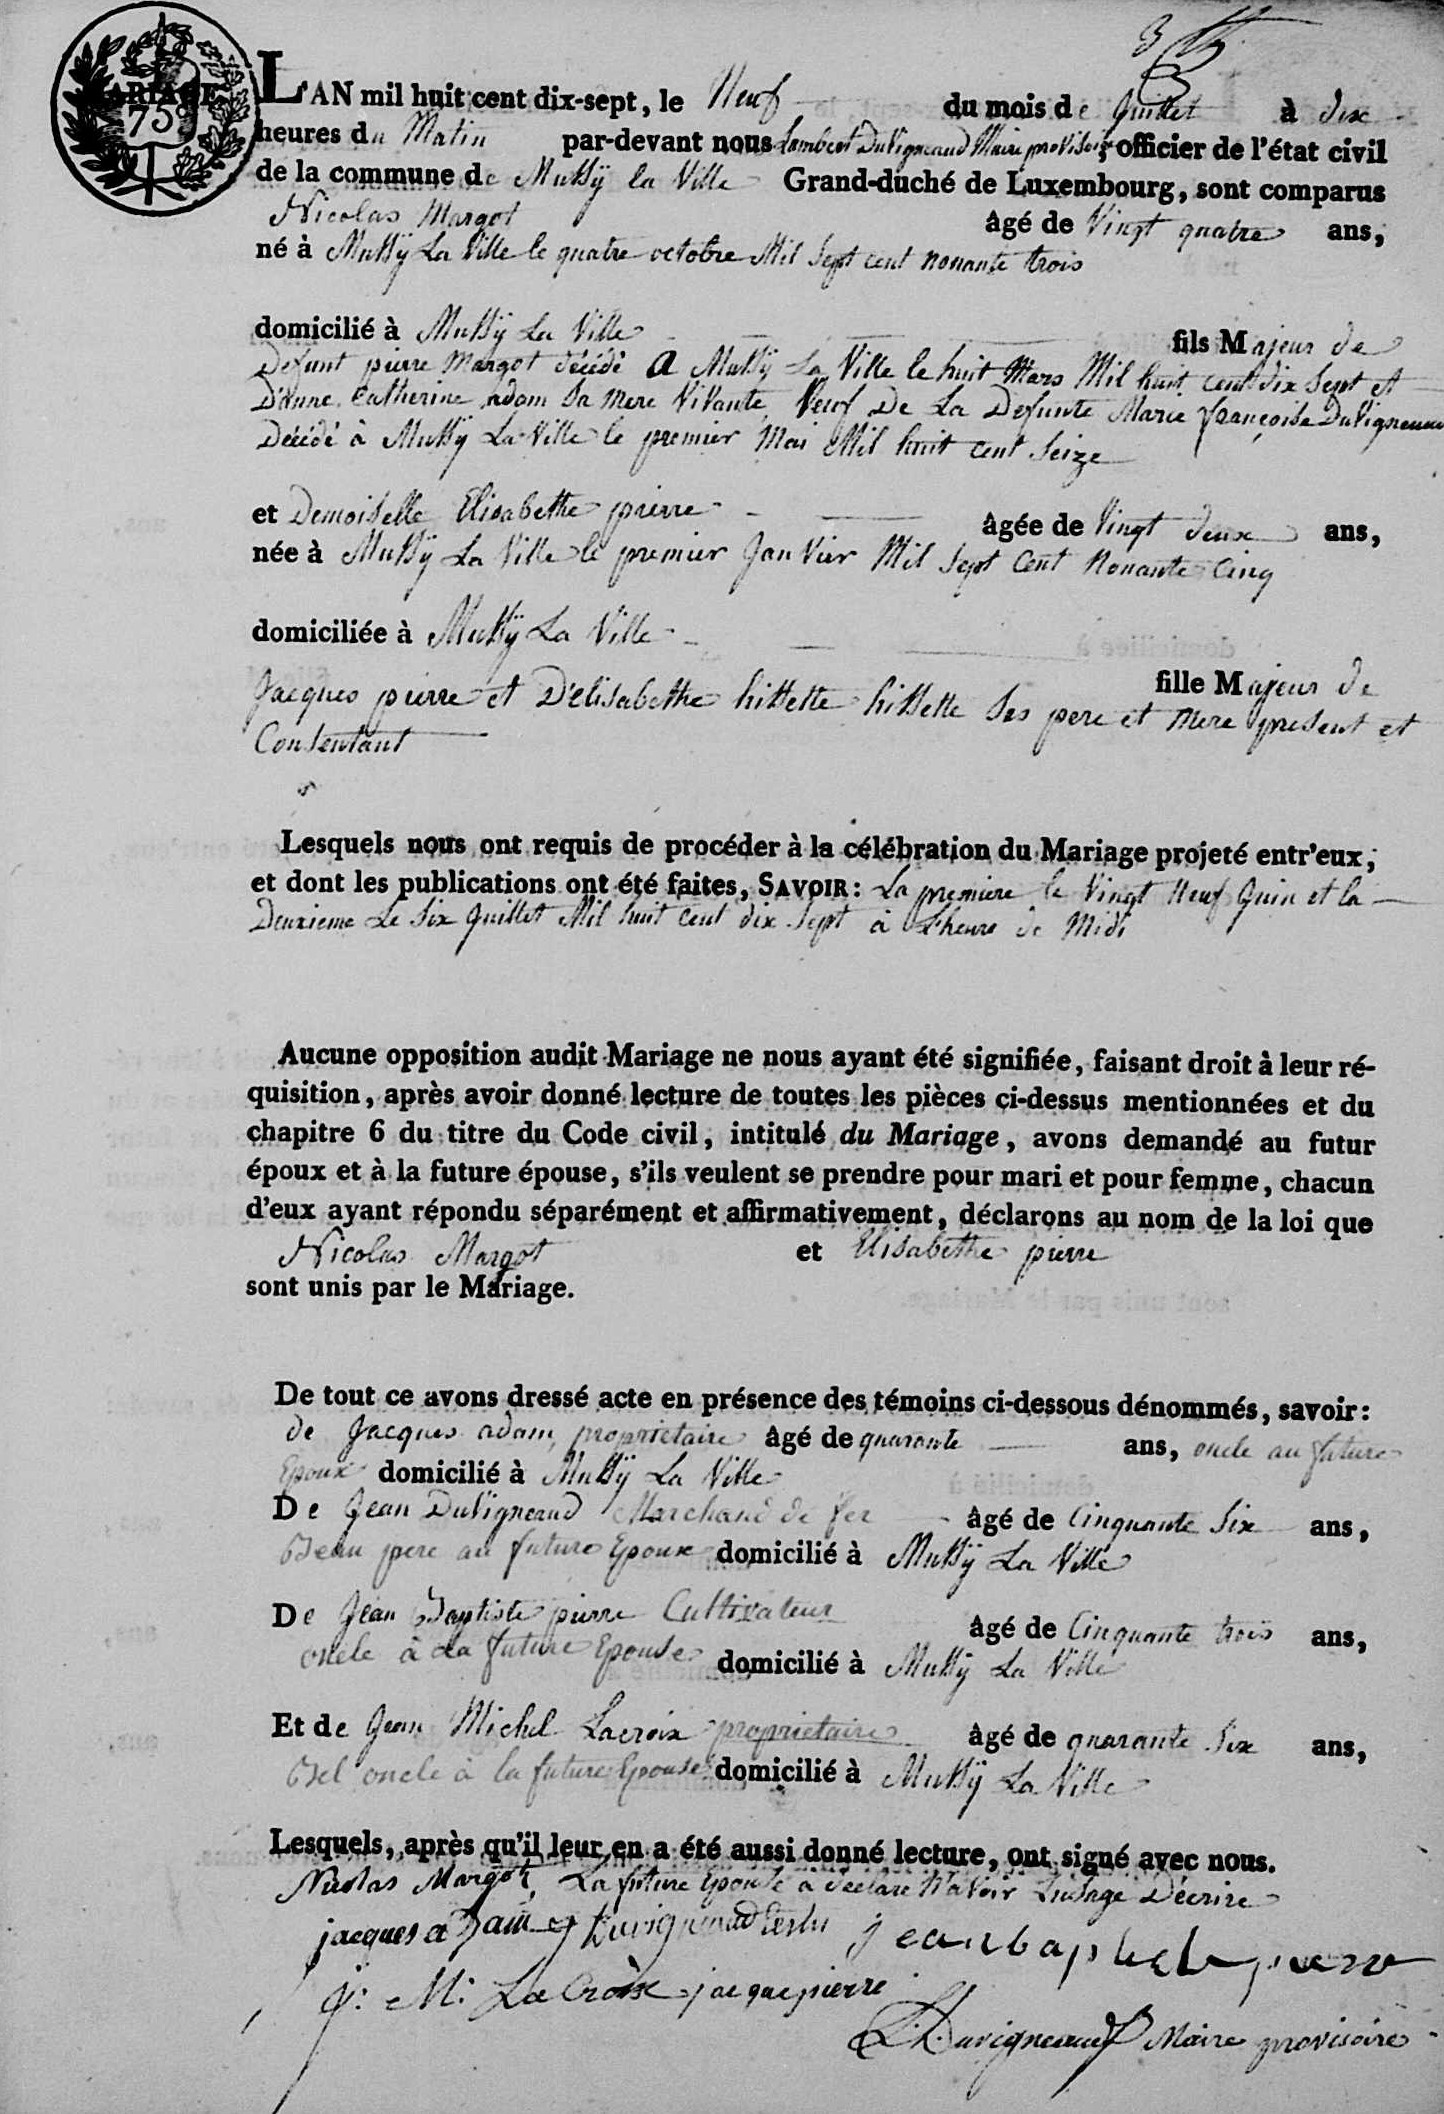 MARIAGE
L'AN mil huit cent dix-sept, le Neuf du mois de Juillet à dix
heures du Matin par-devant nous Lambert Duvigneaud Maire provisoire, officier de l'état civil
de la commune de Mussÿ la Ville Grand-duché de Luxembourg, sont comparus
Nicolas Margot âgé de Vingt quatre ans,
né à Mussÿ La Ville le quatre octobre Mil Sept cent nonante trois
domicilié à Mussÿ La Ville fils Majeur de
Defunt pierre Margot décédé A Mussÿ La Ville le huit Mars Mil huit cent dix Sept et
D'anne Catherine adam Sa Mere Vivante, Veuf De La Defunte Marie françoise Duvigneaud
Décédé à Mussÿ La Ville le premier Mai Mil huit cent Seize
et Demoiselle Elisabethe pierre âgée de Vingt deux ans,
née à Mussÿ La Ville le premier Janvier Mil Sept Cent Nonante Cinq
domiciliée à Mussÿ La Ville
fille Majeur de
Jacques pierre et D'elisabethe hissette hissette Ses pere et Mere present et
Consentant
Lesquels nous ont requis de procéder à la célébration du Mariage projeté entr'eux;
et dont les publications ont été faites, SAVOIR: La premiere le Vingt Neuf Juin et la
Deuxieme Le Six Juillet Mil huit cent dix Sept à L'heure de Midi
Aucune opposition audit Mariage ne nous ayant été signifiée, faisant droit à leur ré-
quisition, après avoir donné lecture de toutes les pièces ci-dessus mentionnées et du
chapitre 6 du titre du Code civil, intitulé du Mariage, avons demandé au futur
époux et à la future épouse, s'ils veulent se prendre pour mari et pour femme, chacun
d'eux ayant répondu séparément et affirmativement, déclarons au nom de la loi que
Nicolas Margot et Elisabethe pierre
sont unis par le Mariage.
De tout ce avons dressé acte en présence des témoins ci-dessous dénommés, savoir:
de Jacques adam, proprietaire âgé de quarante ans, oncle au future
Epoux domicilié à Mussÿ La Ville
De Jean Duvigneaud Marchand de fer âgé de Cinquante Six ans,
Beau pere au future Epoux domicilié à Mussÿ La Ville
De Jean Baptiste pierre Cultivateur âgé de Cinquante trois ans,
oncle à La future Epouse domicilié à Mussÿ La Ville
Et de Jean Michel Lacroix proprietaire âgé de quarante Six ans,
Bel oncle à la future Epouse domicilié à Mussÿ La Ville
Lesquels, après qu'il leur en a été aussi donné lecture, ont signé avec nous.
Nicolas Margot, La future Epouse a déclaré N'avoir L'usage D'écrire
jacques adam J Duvigneaud jean baptiste pierre
J: M: LaCroix jacque pierre
L. Duvigneaud Maire provisoire